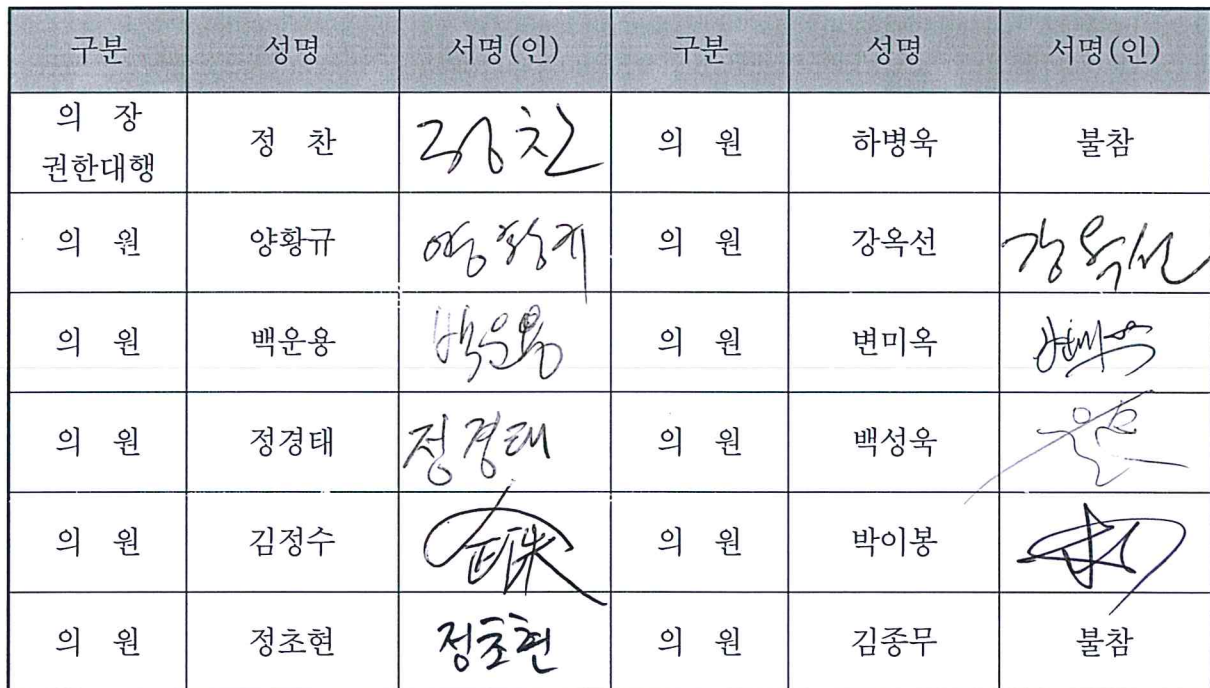 구분 성명 서명(인) 구분 성명 서명(인)
의 장
권한대행 정 찬 정찬 의 원 하병욱 불참
의 원 양황규 양황규 의 원 강옥선 강옥선
의 원 백운용 백운용 의 원 변미옥
의 원 정경태 정경태 의 원 백성욱
의 원 김정수 의 원 박이봉
의 원 정초현 정초현 의 원 김종무 불참